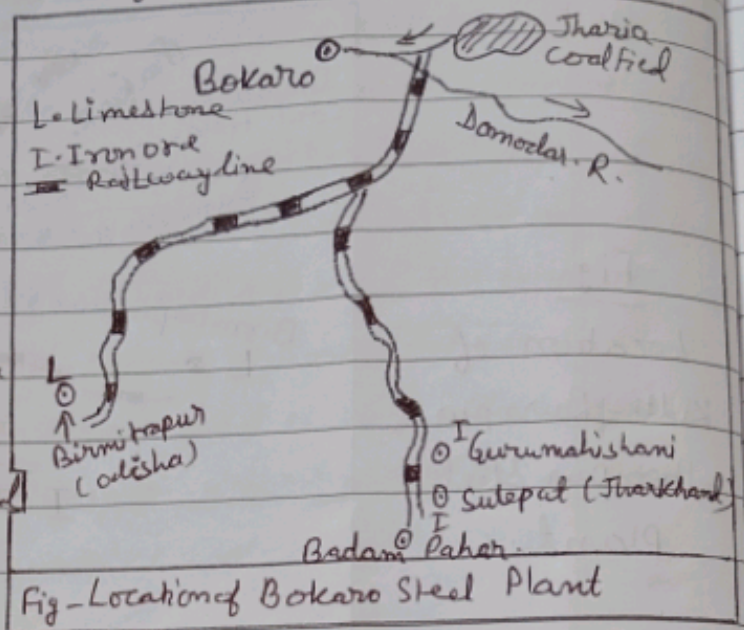 Jharia
Coalfied
Bokaro
L. Limestone
I. Iron ore
Railway line
Damodar. R.
L
Birmitrapur
(odisha)
I Gurumahishani
Sulepat (Jharkhand)
I
Badam Pahar.
Fig - Location of Bokaro Steel Plant